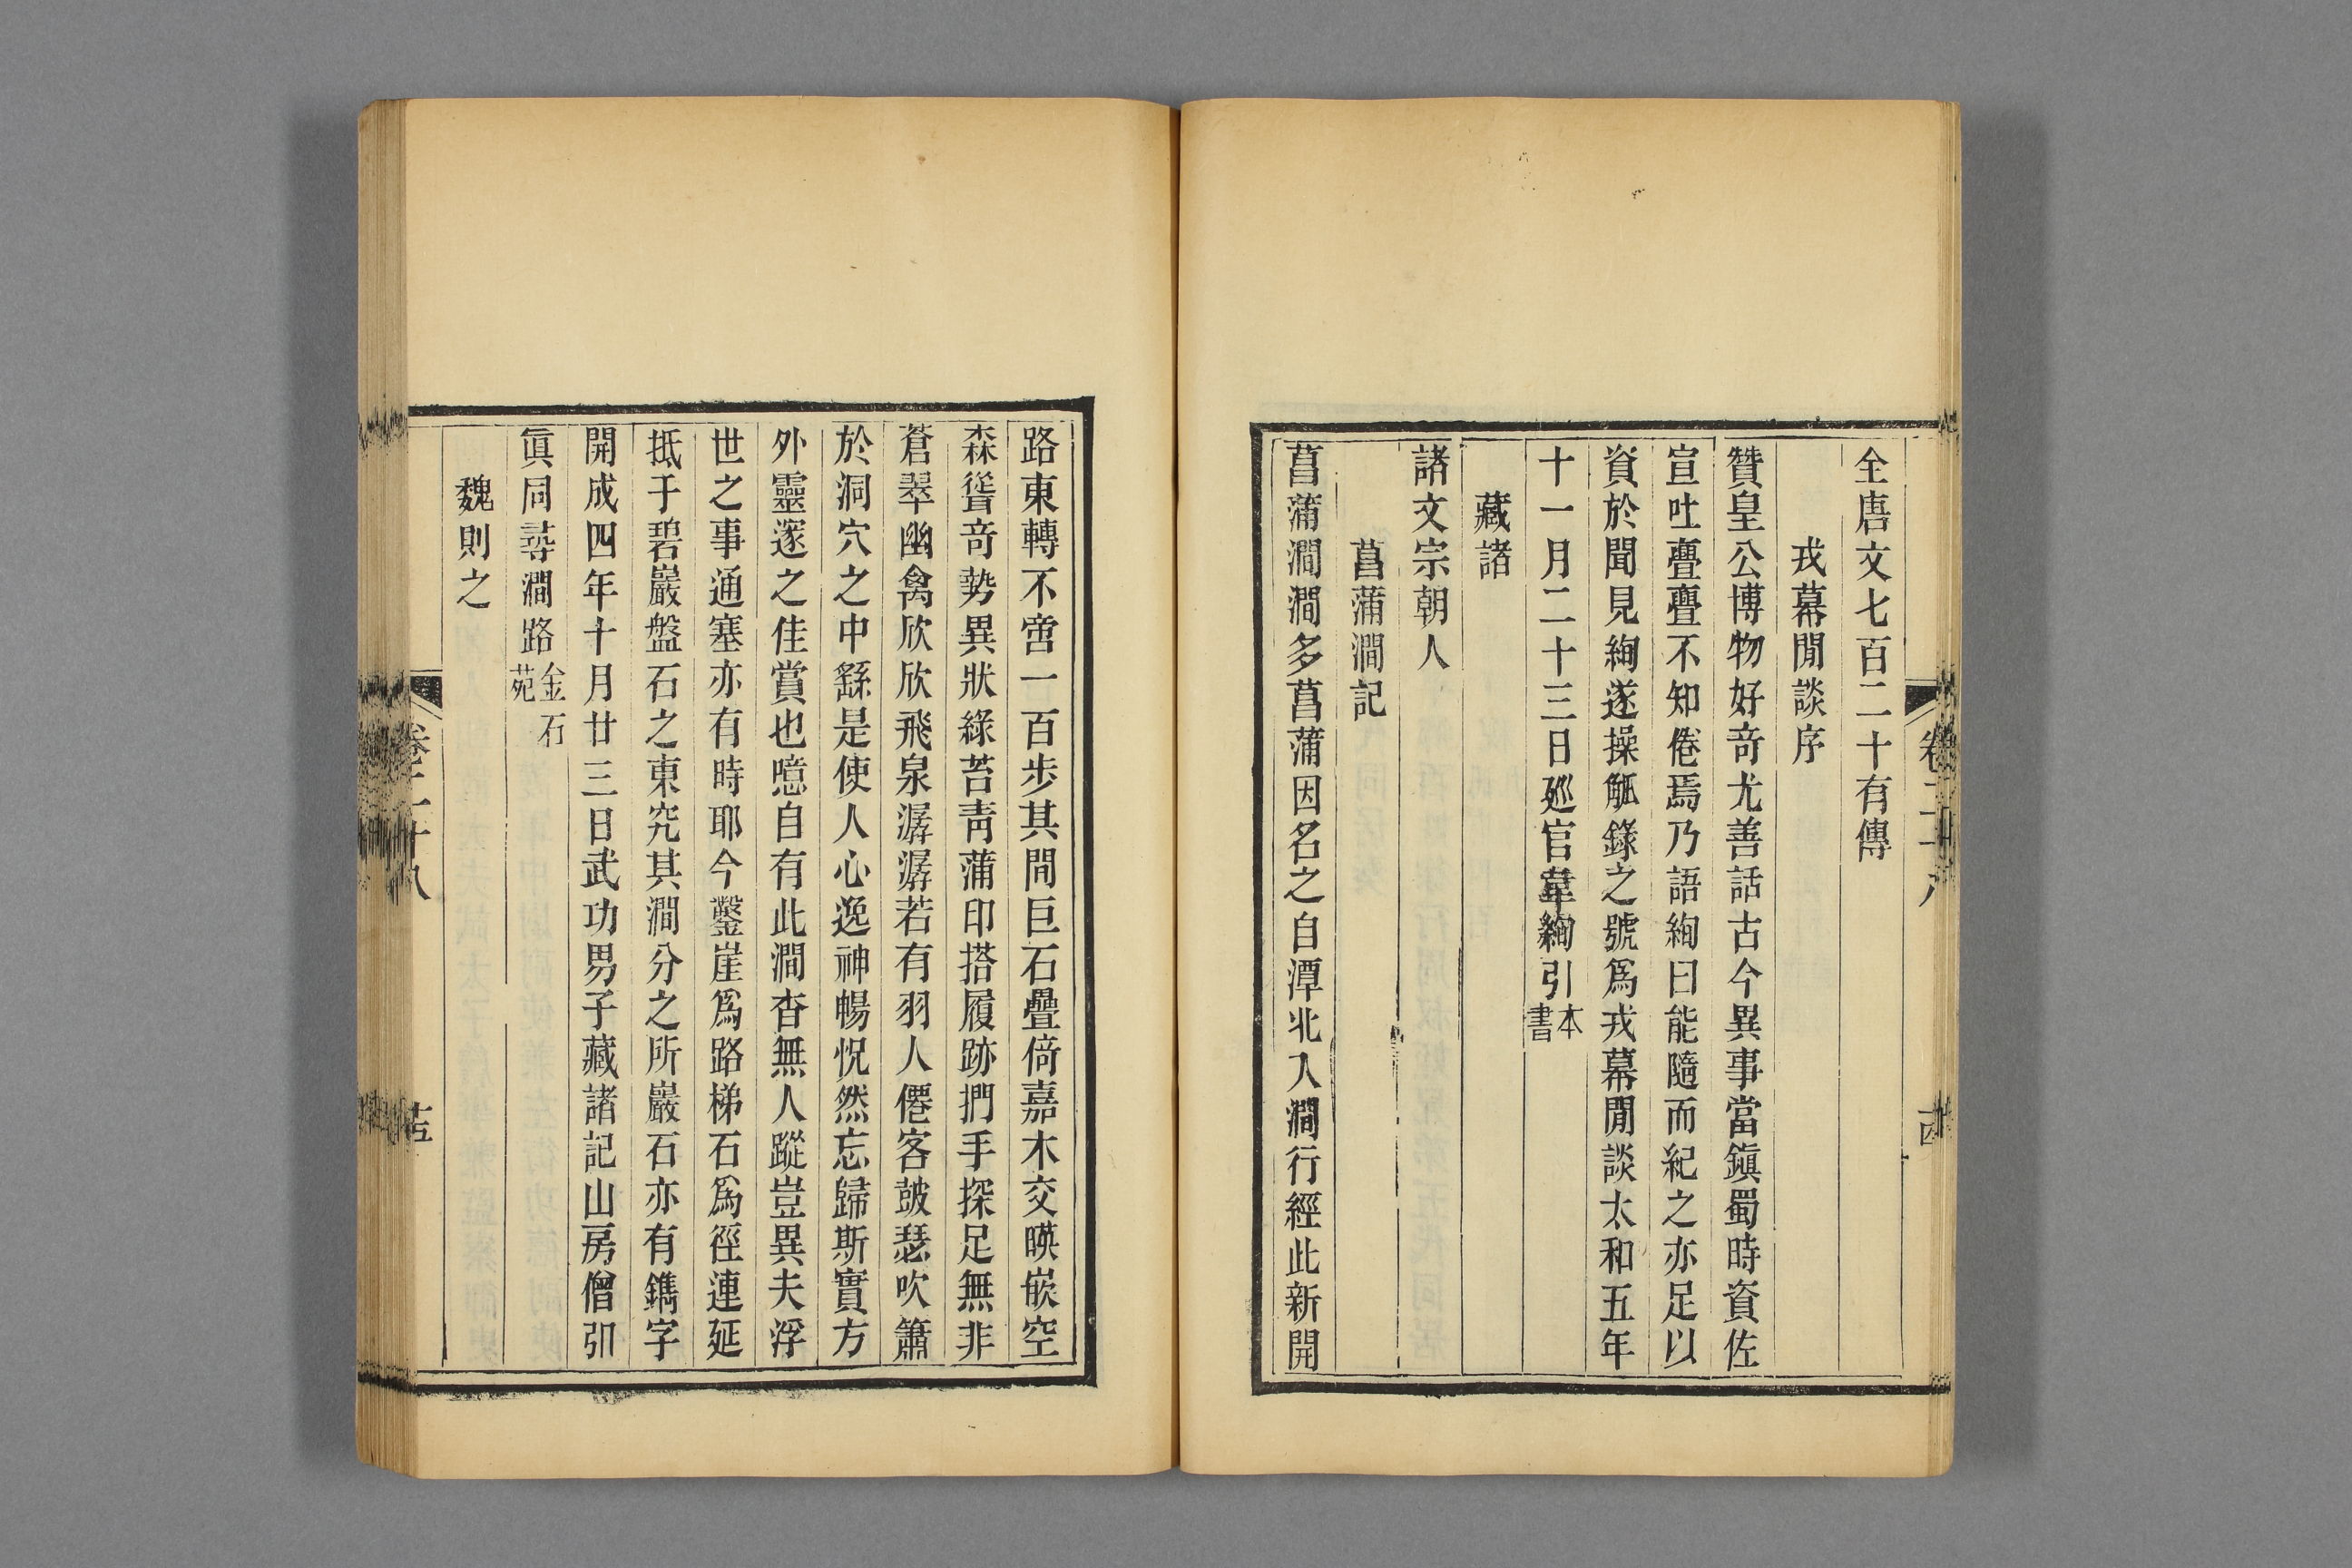 全唐文七百二十有傳
戎幕閒談序
贊皇公博物好奇尤善話古今異事當鎭蜀時資佐
宣吐亹亹不知倦焉乃語絢曰能隨而紀之亦足以
資於聞見絢遂操觚錄之號爲戎幕閒談太和五年
十一月二十三日廵官韋絢引本書
藏諸
諸文宗朝人
菖蒲澗記
菖蒲澗澗多菖蒲因名之自潭北入澗行經此新開
卷二十八
路東轉不啻一百步其間巨石疊倚嘉木交暎嵌空
森聳奇勢異狀綠苔靑蒲印搭履跡捫手探足無非
蒼翠幽禽欣欣飛泉潺潺若有羽人僊客鼓瑟吹簫
於洞穴之中繇是使人心逸神暢怳然忘歸斯實方
外靈邃之佳賞也噫自有此澗杳無人蹤豈異夫浮
世之事通塞亦有時耶今鑿崖爲路梯石爲徑連延
抵于碧巖盤石之東究其澗分之所巖石亦有鐫字
開成四年十月廿三日武功男子藏諸記山房僧引
眞同尋澗路金石苑
魏則之
卷二十八